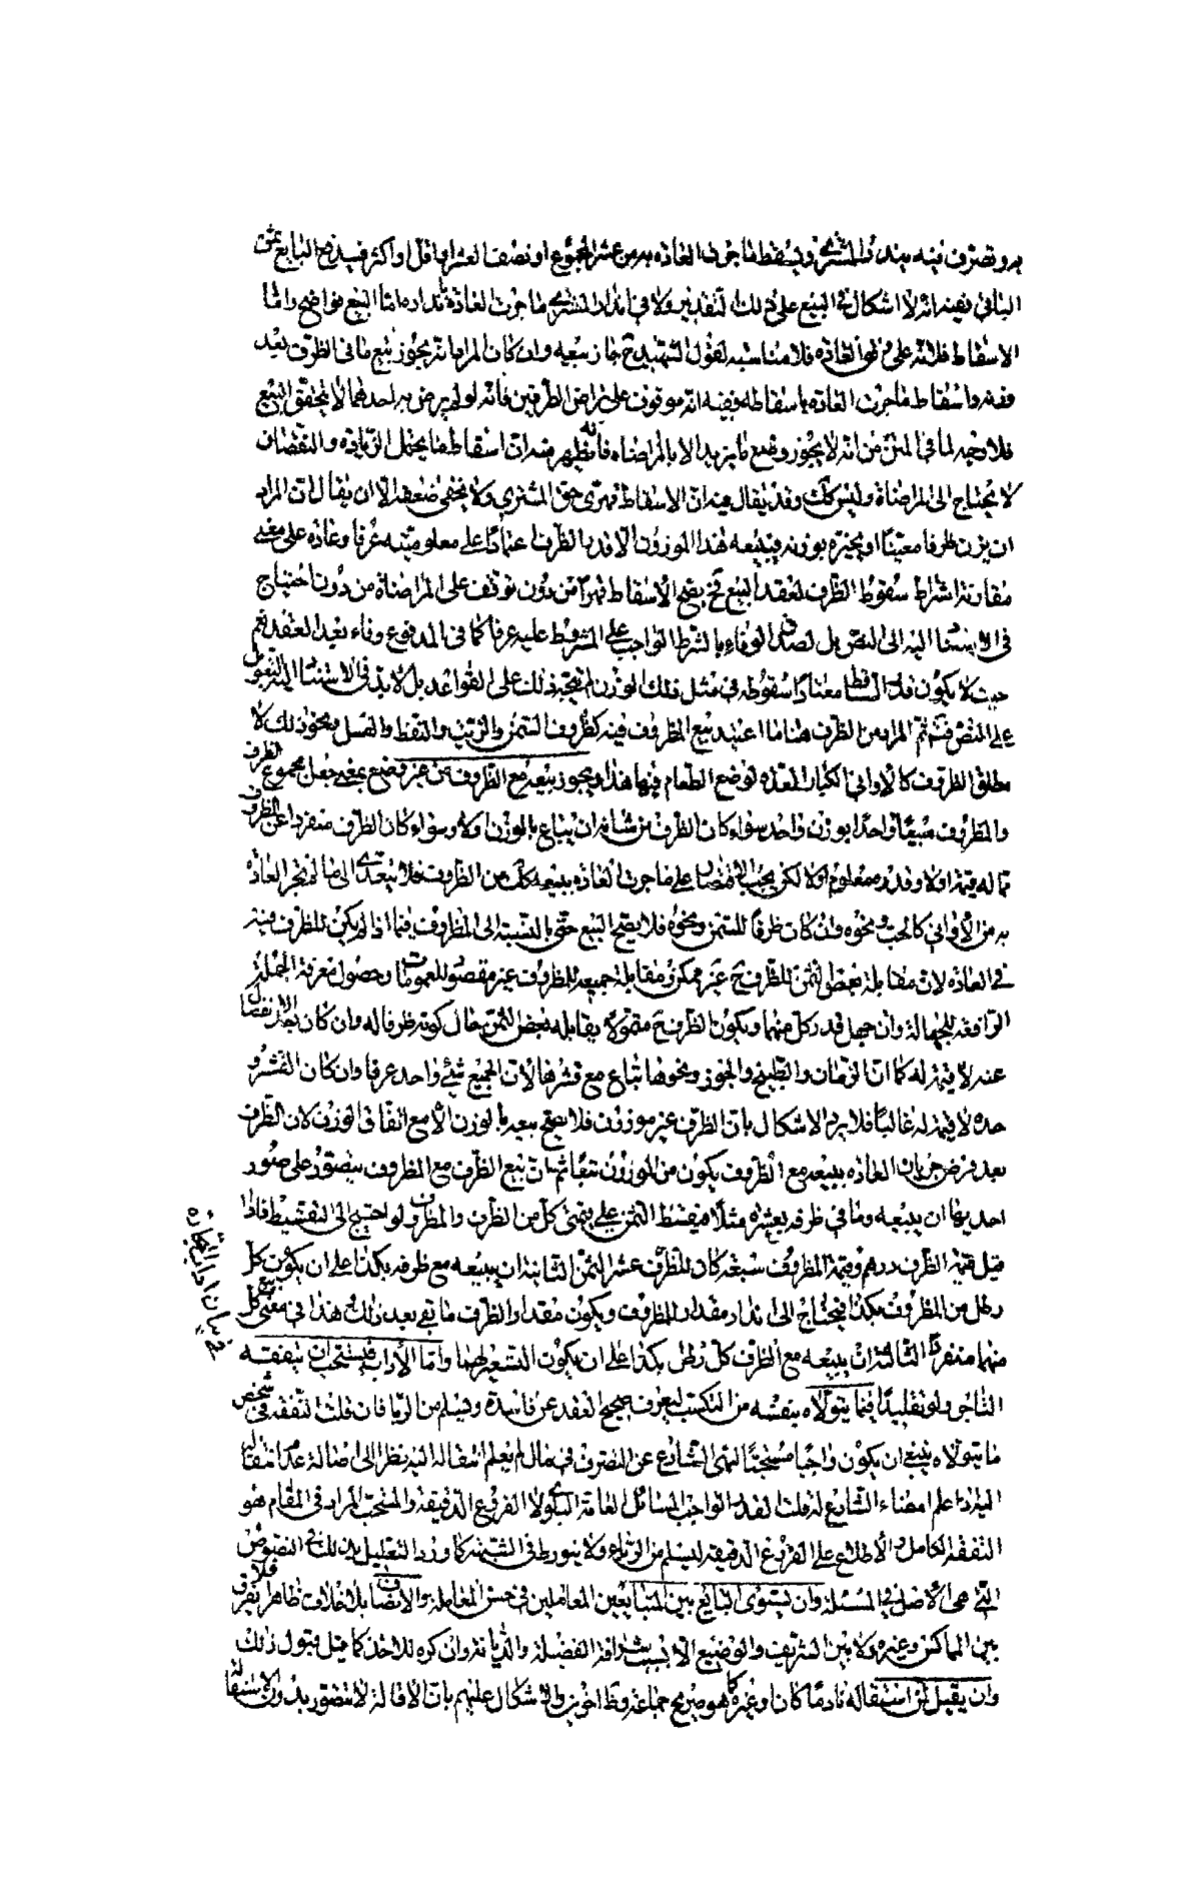 به وتصرف فيه بيد المشتري ويسقط ما جرت العاده به من عشر المجموع او نصف العشر او اقل او اكثر فيدفع البايع ثمن
الباقي بقينه انه لا اشكال في البيع على ذلك التقدير ولا في انداد المشتري ما جرت العادة بانداده اما البيع فواضح واما
الاسقاط فلانه على وفق العاده فلا مناسبه لقول الشهيد ح جاز بيعه وان كان المراد انه يجوز بيع ما في الظرف بعد
وفيه واسقاط ما جرت العاده باسقاطه وفيه انه موقوف على تراض الطرفين فانه لو لم يرض به احدهما لا يتحقق البيع
فلا وجه لما في المتن من انه لا يجوز وضع ما يزيد الا بالمراضاه فانه يظهر منه ان اسقاط ما يحتمل الزياده والنقصان
لا يحتاج الى المراضاة وليس كك وقد يقال فيه ان الاسقاط قهري حق المشتري ولا يخفى ضعفه الا ان يقال ان المراد
ان يزن ظرفا معينا او يخبره بوزنه فيبيعه هذا الموزون الا قدر الظرف اعتمادا على معلوميته عرفا وعاده على معنى
مقارنة اشتراط سقوط الظرف لعقد البيع فح يصح الاسقاط قهرا من دون توقف على المراضاة من دون احتياج
في الاستناد اليه الى النص بل لصدق الوفاء بالشرط الواجب على المشروط عليه عرفا كما في المدفوع وفاء بعد العقد نعم
حيث لا يكون قدر الساقط معتادا سقوطه في مثل فلك الوزن لم يتجه ذلك على القواعد بل لا بد في الاستناد اليه التعويل
على النص فيه ثم المراد من الظرف هنا ما اعتيد بيع المظروف فيه كظروف السمن والزيت والنفط والعسل ونحو ذلك لا
مطلق الظروف كالاواني الكبار المعده لوضع الطعام فيها هذا ويجوز بيعه مع الظروف من غير وضع بمعنى جعل مجموع الظرف
والمظروف مبيعا واحدا بوزن واحد سواء كان الظرف من شانه ان يباع بالوزن اولا وسواء كان الظرف منفردا عن المظروف
مما له قيمة اولا وقدره معلوم اولا لكن يجب الاقتصار على ما جرت العاده ببيعه كك من الظروف فلا يتعدى الى ما لم تجر العاده
به من الاواني كالحب ونحوه وان كان ظرفا للسمن ونحوه فلا يصح البيع حتى بالنسبة الى المظروف فيما اذا لم يكن للظرف قيمة
في العاده لان مقابلة بعض الثمن للظرف ح غير ممكن ومقابلة جميعه للمظروف غير مقصود للعمومات وحصول معرفة الجملة
الرافعه للجهالة وان جهل قدر كل منهما ويكون الظرف ح متمولا يقابله بعض الثمن حال كونه ظرفا له وان كان بعد الانفصال
عنه لا قيمة له كما ان الرمان والبطيخ والجوز ونحوها تباع مع قشرها لان الجميع شيء واحد عرفا وان كان القشر و
حده لا قيمة له غالبا فلا يرد الاشكال بان الظرف غير موزون فلا يصح بيعه بالوزن الا مع اتفاق الوزن لان الظرف
بعد فرض جريان العاده ببيعه مع الظروف يكون من الموزون تبعا ثم ان بيع الظرف مع المظروف يتصور على صور
احديها ان يبيعه وما في ظرفه بعشرة مثلا فيقسط الثمن على قيمتى كل من الظرف والمظروف لو احتيج الى التقسيط فاذا
قيل قيمة الظرف درهم وقيمة المظروف تسعة كان للظرف عشر الثمن الثانية ان يبيعه مع ظرفه بكذا على ان يكون كل
رطل من المظروف بكذا فيحتاج الى انداد مقدار للمظروف ويكون مقدار الظرف ما بقى بعد ذلك هذا في معنى بيع كل
منهما منفردا الثالثة ان يبيعه مع الظرف كل رطل بكذا على ان يكون التسعير لهما واما الاداب فيستحب ان يتفقه
التاجر ولو تقليدا فيما يتولاه بنفسه من التكسب ليعرف صحيح العقد عن فاسده ويسلم من الربا فان قلت التفقه في شخص
ما يتولاه ينبغي ان يكون واجبا مستحبا لنهى الشارع عن التصرف في مال لم يعلم انتقاله اليه نظرا الى اصالة عدم انتقاله
اليه ما علم امضاء الشارع له قلت القدر الواجب المسائل العامة البلوى لا الفروع الدقيقة والمستحب المراد في المقام هو
التفقه الكامل والاطلاع على الفروع الدقيقه ليسلم من الربا ولا يتورط في الشبهه كما ورد التعليل بذلك في النصوص
التي هي الاصل في المسئلة وان يسوى البايع بين المتبايعين المعاملين في حسن المعاملة والانصاف بلا خلاف ظاهر فلا يفرق
بين المماكس وغيره ولا بين الشريف والوضيع الا بسبب شرافة الفضيلة والديانة وان كره للاخذ كما قيل قبول ذلك
وان يقيل لمن استقاله نادما كان او غيره كما هو صريح جماعة وظ اخرين والاشكال عليهم بان الاقالة لا تتصور بدون الاستقالة
في بيان آداب التجارة